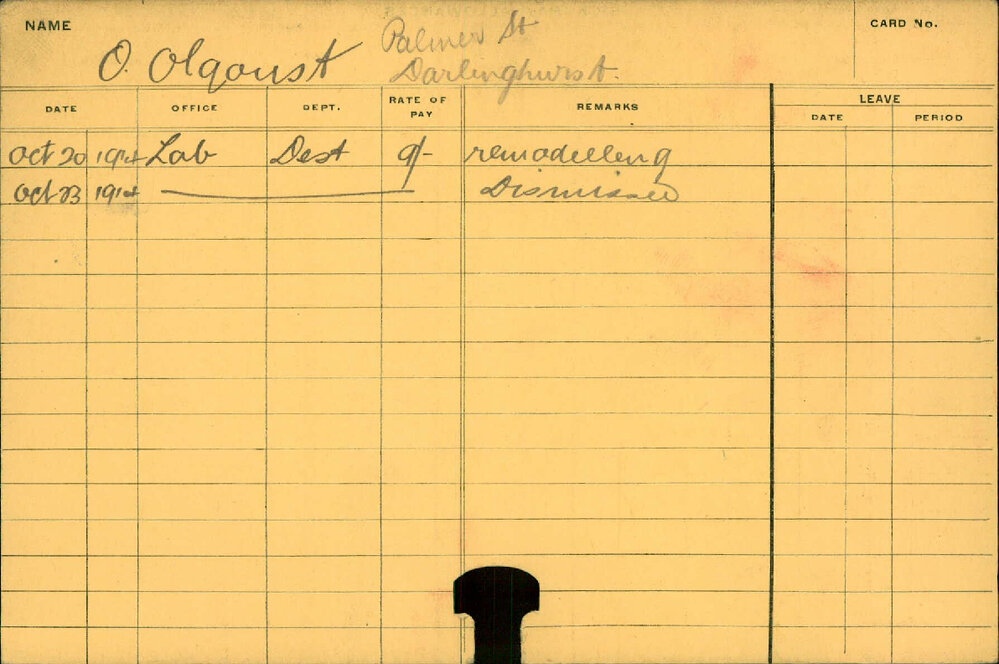 NAME
O. Olqoust
Palmer St
Darlinghurst.
CARD No.
DATE OFFICE DEPT. RATE OF PAY REMARKS LEAVE
DATE PERIOD
Oct 20 1914 Lab Dest 9/- remodelling
Oct 23 1914 Dismissed